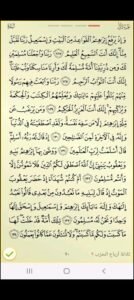 وَإِذْ يَرْفَعُ إِبْرَٰهِۦمُ ٱلْقَوَاعِدَ مِنَ ٱلْبَيْتِ وَإِسْمَٰعِيلُ رَبَّنَا تَقَبَّلْ
مِنَّآ إِنَّكَ أَنتَ ٱلسَّمِيعُ ٱلْعَلِيمُ ١٢٧ رَبَّنَا وَٱجْعَلْنَا مُسْلِمَيْنِ
لَكَ وَمِن ذُرِّيَّتِنَآ أُمَّةً مُّسْلِمَةً لَّكَ وَأَرِنَا مَنَاسِكَنَا وَتُبْ عَلَيْنَآ
إِنَّكَ أَنتَ ٱلتَّوَّابُ ٱلرَّحِيمُ ١٢٨ رَبَّنَا وَٱبْعَثْ فِيهِمْ رَسُولًا
مِّنْهُمْ يَتْلُوا۟ عَلَيْهِمْ ءَايَٰتِكَ وَيُعَلِّمُهُمُ ٱلْكِتَٰبَ وَٱلْحِكْمَةَ
وَيُزَكِّيهِمْ إِنَّكَ أَنتَ ٱلْعَزِيزُ ٱلْحَكِيمُ ١٢٩ وَمَن يَرْغَبُ عَن
مِّلَّةِ إِبْرَٰهِۦمَ إِلَّا مَن سَفِهَ نَفْسَهُۥ وَلَقَدِ ٱصْطَفَيْنَٰهُ فِى ٱلدُّنْيَا
وَإِنَّهُۥ فِى ٱلْءَاخِرَةِ لَمِنَ ٱلصَّٰلِحِينَ ١٣٠ إِذْ قَالَ لَهُۥ رَبُّهُۥٓ أَسْلِمْ
قَالَ أَسْلَمْتُ لِرَبِّ ٱلْعَٰلَمِينَ ١٣١ وَوَصَّىٰ بِهَآ إِبْرَٰهِۦمُ بَنِيهِ
وَيَعْقُوبُ يَٰبَنِىَّ إِنَّ ٱللَّهَ ٱصْطَفَىٰ لَكُمُ ٱلدِّينَ فَلَا تَمُوتُنَّ إِلَّا
وَأَنتُم مُّسْلِمُونَ ١٣٢ أَمْ كُنتُمْ شُهَدَآءَ إِذْ حَضَرَ يَعْقُوبَ
ٱلْمَوْتُ إِذْ قَالَ لِبَنِيهِ مَا تَعْبُدُونَ مِنۢ بَعْدِى قَالُوا۟ نَعْبُدُ إِلَٰهَكَ
وَإِلَٰهَ ءَابَآئِكَ إِبْرَٰهِۦمَ وَإِسْمَٰعِيلَ وَإِسْحَٰقَ إِلَٰهًا وَٰحِدًا
وَنَحْنُ لَهُۥ مُسْلِمُونَ ١٣٣ تِلْكَ أُمَّةٌ قَدْ خَلَتْ لَهَا
مَا كَسَبَتْ وَلَكُم مَّا كَسَبْتُمْ وَلَا تُسْـَٔلُونَ عَمَّا كَانُوا۟ يَعْمَلُونَ ١٣٤
ثلاثة أرباع الحزب ٢ ٢٠